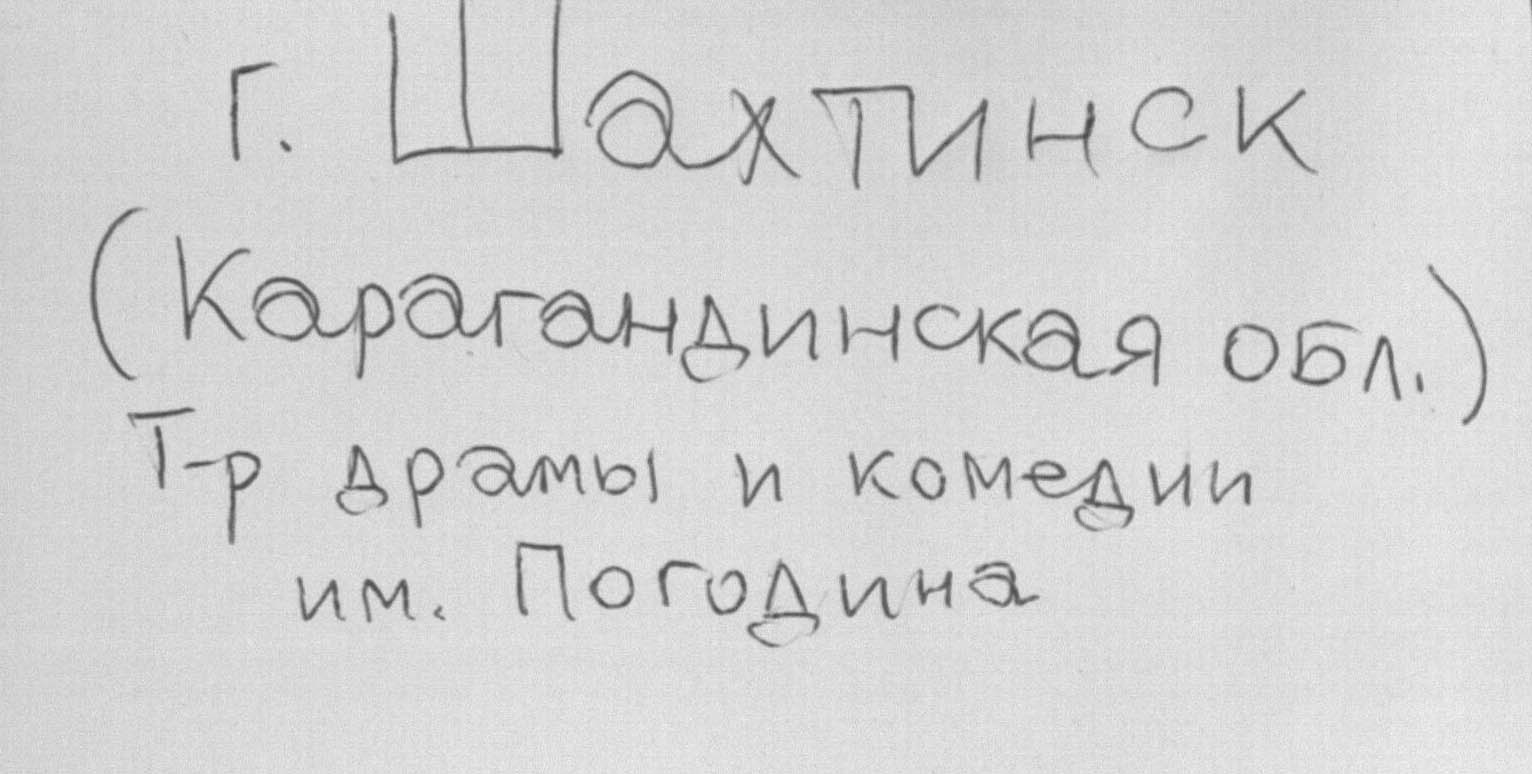 г. Шахтинск
(Карагандинская обл.)
Т-р драмы и комедии
им. Погодина